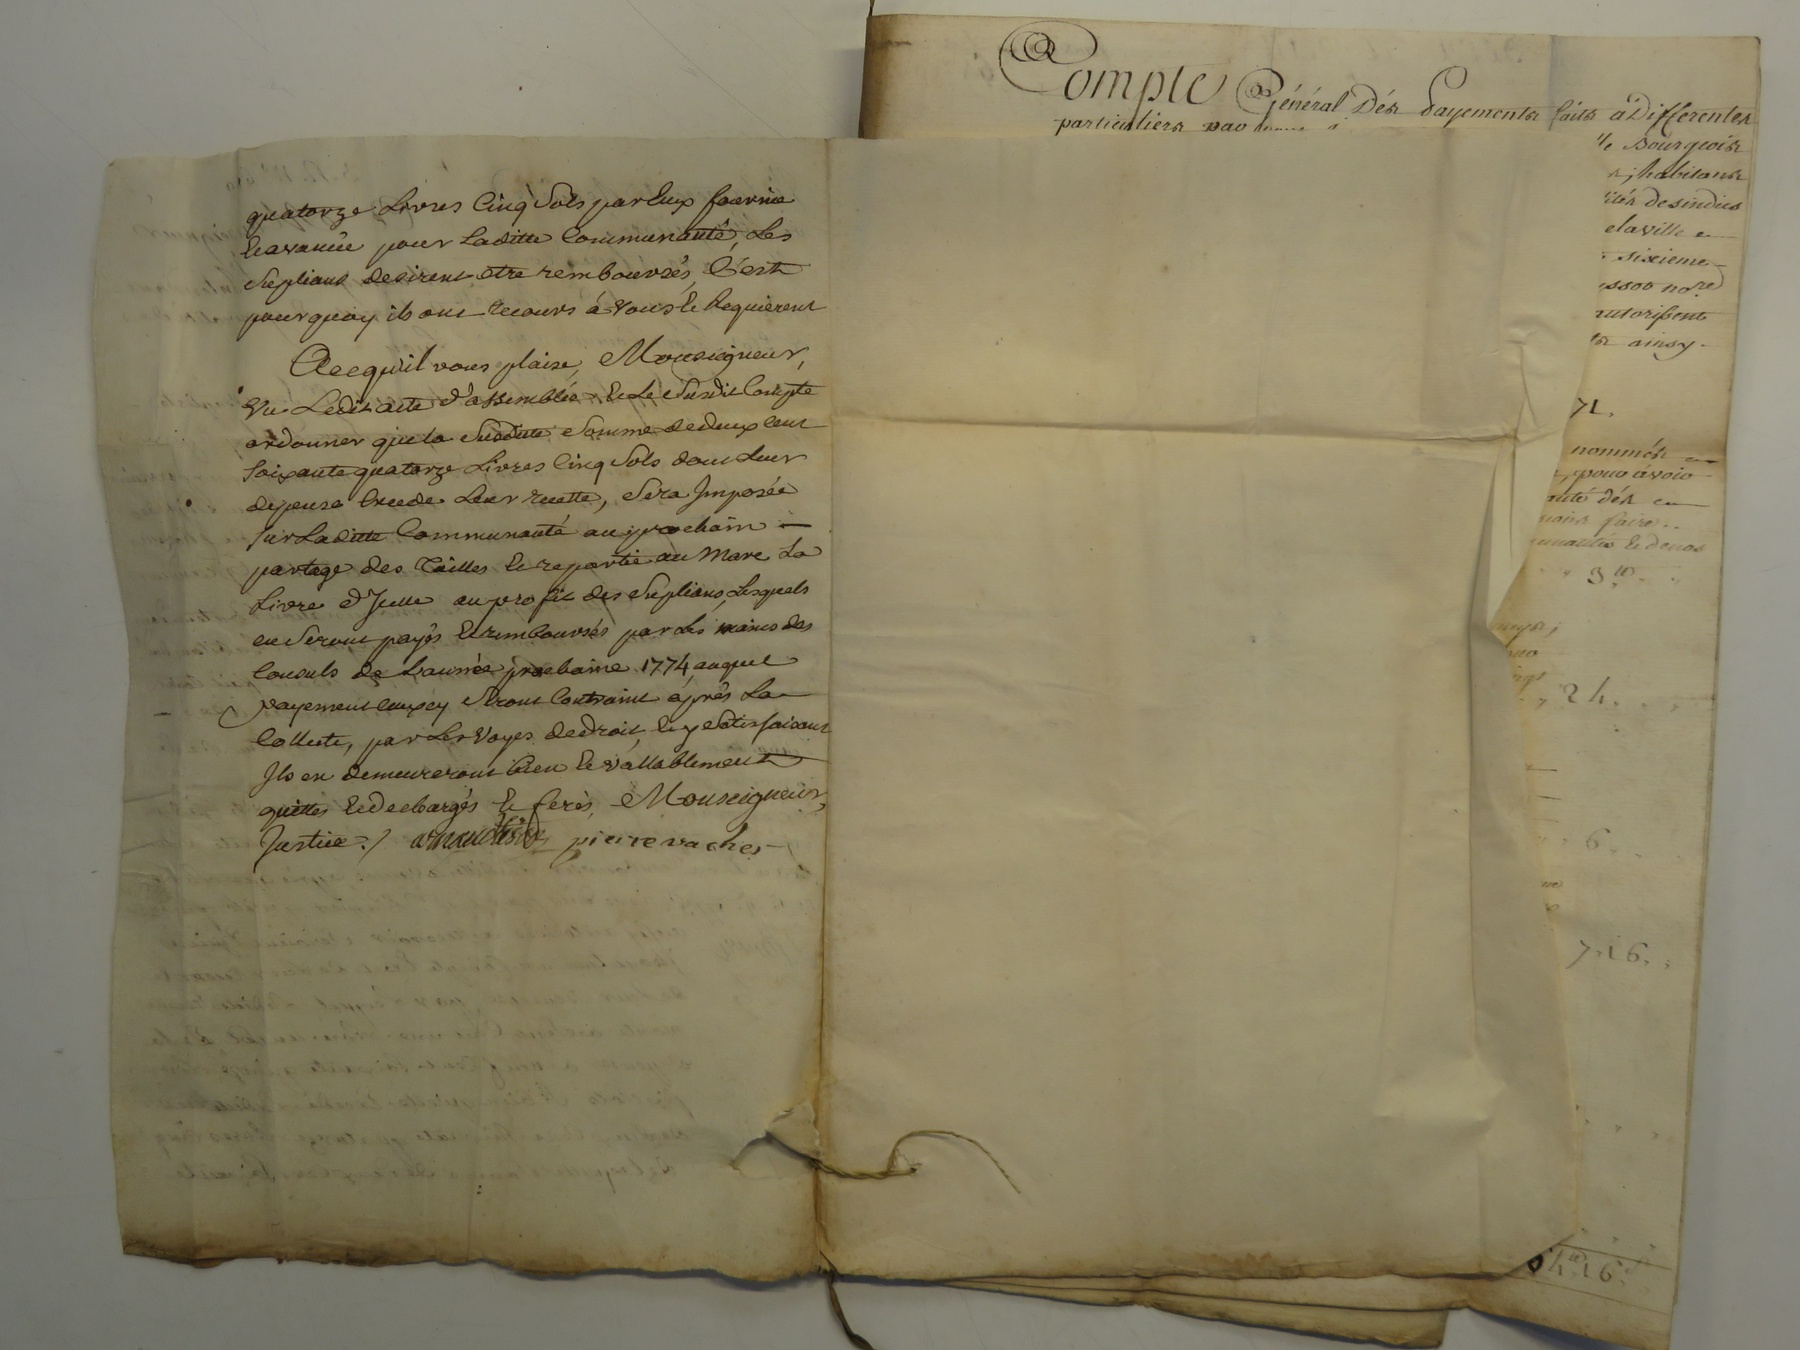 quatorze Livres Cinq Sols par Eux fournie
Et avancée pour Laditte Communauté, Les
Suplians desirent etre remboursés, C'est
pourquoy ils ont recours á Vous Et Requierent
Acequ'il vous plaise, Monseigneur,
Vu Ledit acte d'assemblée Et Le Susdit Compte
ordonner que la Susditte Somme de deux Cent
Soixante quatorze Livres Cinq Sols dont Leur
depense Excede Leur recette, Sera Imposée
sur Laditte Communauté au prochain
partage des Tailles Et repartie au Marc La
Livre d'Icelle au profit des Suplians, Lesquels
en Seront payés Et remboursés par Les mains des
Consuls de L'année prochaine 1774, auquel
payement ceux cy Seront Contraint aprés La
Collecte, par Les Voyes de droit, Et y Satisfaisant
Ils en demeureront bien Et vallablement
quittes Et dechargés Et ferés, Monseigneur,
Justice ./ pierre vaches
Compte Général Dés Payements faits á Differentes
particuliers par
Bourgeois
habitans
de sindics
de la ville
sixieme
autorisent
ainsy.
71.
nommés
pour ávoir
dés
faire
Et de nos
3
24.
6.
7.16.
4.16.